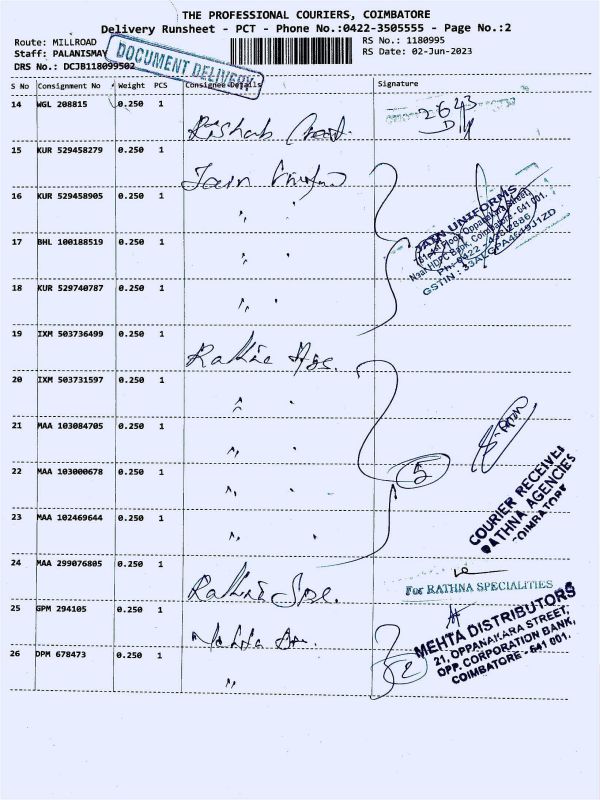 THE PROFESSIONAL COURIERS, COIMBATORE
Delivery Runsheet - PCT - Phone No.:0422-3505555 - Page No.:2
Route: MILLROAD
RS No.: 1180995
Staff: PALANISMAY
RS Date: 02-Jun-2023
DRS No.: DCJB118099502
DOCUMENT DELIVERY
S No Consignment No Weight PCS Consignee Details Signature
14 WGL 208815 0.250 1
2643
15 KUR 529458279 0.250 1 Jain
16 KUR 529458905 0.250 1 " "
JAIN UNIFORMS
17 BHL 100188519 0.250 1 " "
18 KUR 529740787 0.250 1 " "
19 IXM 503736499 0.250 1
20 IXM 503731597 0.250 1 " "
21 MAA 103084705 0.250 1 " "
22 MAA 103000678 0.250 1 " "
5
23 MAA 102469644 0.250 1 " "
COURIER RECEIVED
RATHNA AGENCIES
COIMBATORE
24 MAA 299076805 0.250 1
For RATHNA SPECIALITIES
25 GPM 294105 0.250 1
MEHTA DISTRIBUTORS
21, OPPANAKARA STREET,
OPP. CORPORATION BANK,
COIMBATORE - 641 001.
26 DPM 678473 0.250 1 "
2